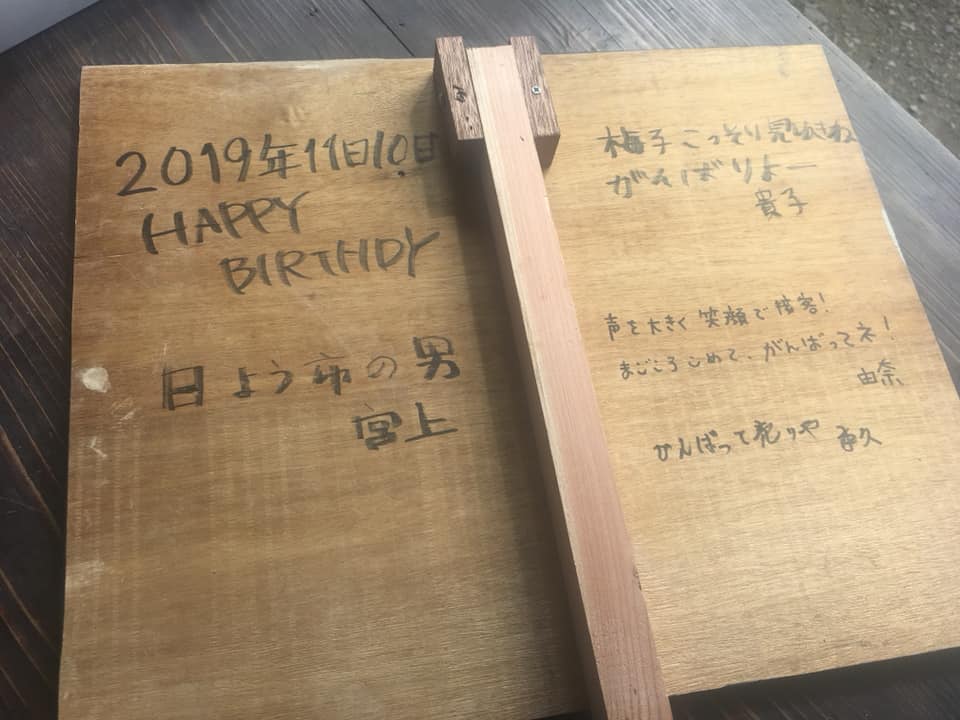 2019年11日10日
HAPPY
BIRTHDY
日よう市の男
宮上
梅子こっそり見ゆきね
がんばりよー
貴子
声を大きく笑顔で接客!
まごころこめて、がんばってネ!
由奈
がんばって売りや